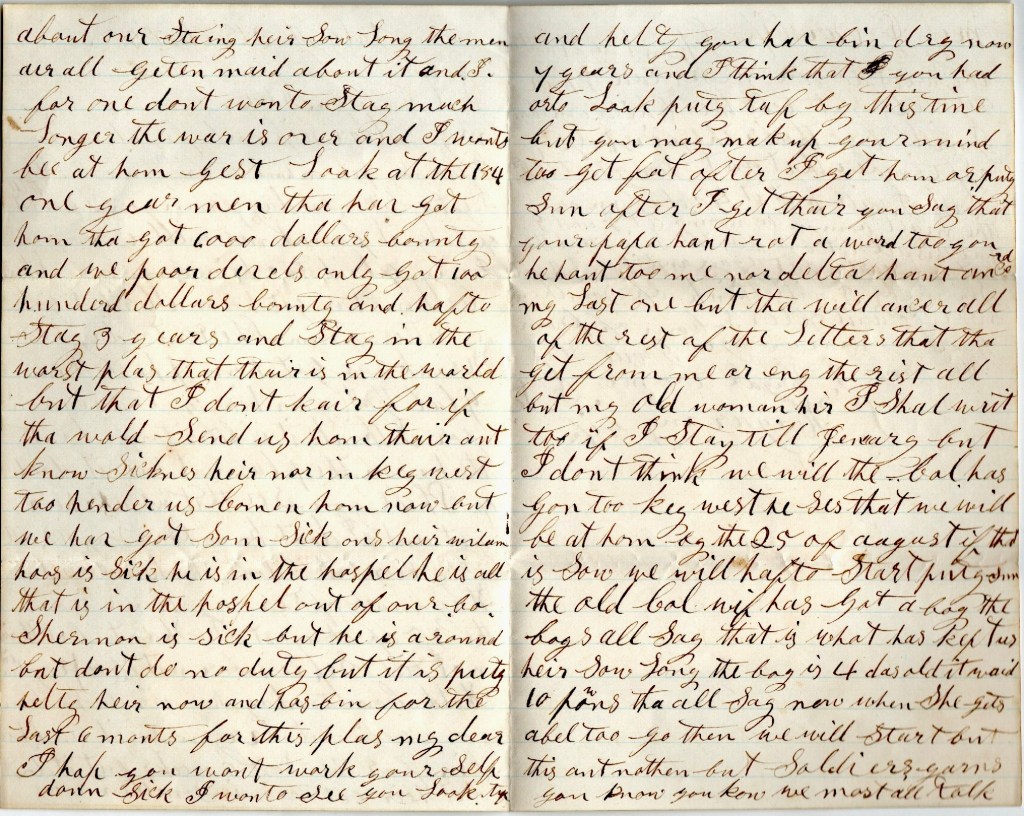 about our Staing heir Sow Song the men
air all Geten maid about it and I.
for one dont wonto Stag much
Songer the war is over and I wonts
bee at hom gest Look at the 154
one gear men tha har got
hom tha got 6000 dollars bounty
and we poor devels only got 100
hunderd dollars bounty and hafto
Stag 3 gears and Stag in the
worst plas that thair is in the world
but that I dont kair for if
tha wold Send us hom thair ant
know Siknes heir nor in keg west
too hender us bomen hom now but
we har got Som Sick ons heir wilam
hoos is Sick he is in the hospel he is all
that is in the hoshel out of our bo.
Shermon is Sick but he is around
but dont do no duty but it is puty
helty heir now and has bin for the
Last 6 monts for this plas my dear
I hop you wont work your Self
down Sick I wonto See you Look
and helty you har bin dry now
4 years and I think that you had
orto Look puty taf by this tine
but you may mak up your mind
too get fat after I get hom or puty
Sun after I get thair you Say that
your papa hant rot a word too you
he hant too me nor delta hant
my Last one but tha will anser all
of the rest of the Letters that tha
get from me or eng the rist all
but my old woman hir I Shal writ
too if I Stay till Jenuary but
I dont think we will the Col has
gon too key west he Ses that we will
be at hom by the 25 of august if that
is Sow we will hafto Start puty Sun
the old Col wif has Got a boy the
boys all Say that is what has kep us
heir Sow Long the boy is 4 das old it waid
10 pons tha all Say now when She gets
abel too go then we will Start but
this ant nothen but Soldiers yarns
you know you kow we most all talk